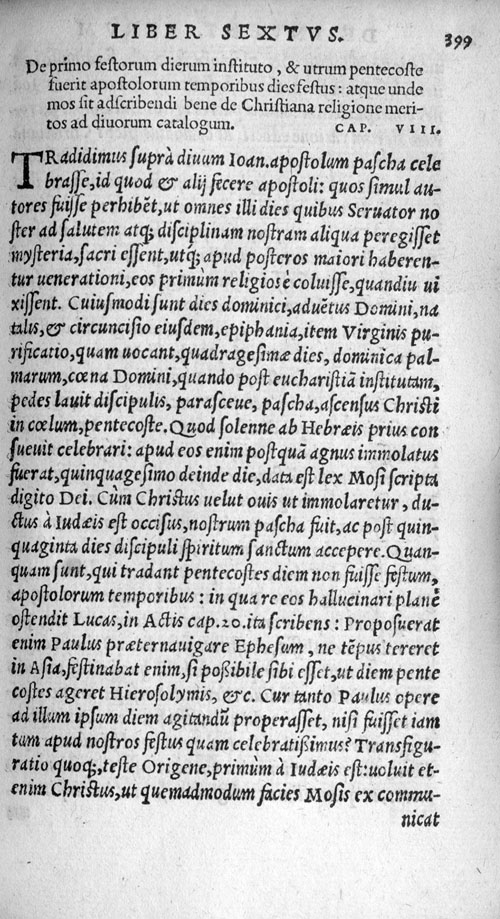 LIBER SEXTVS. 399
De primo festorum dierum instituto, & utrum pentecoste
fuerit apostolorum temporibus dies festus: atque unde
mos sit adscribendi bene de Christiana religione meri-
tos ad diuorum catalogum. CAP. VIII.
TRadidimus suprà diuum Ioan. apostolum pascha cele
brasse, id quod & alij fecere apostoli: quos simul au-
tores fuisse perhibēt, ut omnes illi dies quibus Seruator no
ster ad salutem atq; disciplinam nostram aliqua peregisset
mysteria, sacri essent, utq; apud posteros maiori haberen-
tur uenerationi, eos primùm religiosè coluisse, quandiu ui
xissent. Cuiusmodi sunt dies dominici, aduētus Domini, na
talis, & circuncisio eiusdem, epiphania, item Virginis pu-
rificatio, quam uocant, quadragesimæ dies, dominica pal-
marum, cœna Domini, quando post eucharistiā institutam,
pedes lauit discipulis, parasceue, pascha, ascensus Christi
in cœlum, pentecoste. Quod solenne ab Hebræis prius con
sueuit celebrari: apud eos enim postquā agnus immolatus
fuerat, quinquagesimo deinde die, data est lex Mosi scripta
digito Dei. Cùm Christus uelut ouis ut immolaretur, du-
ctus à Iudæis est occisus, nostrum pascha fuit, ac post quin-
quaginta dies discipuli spiritum sanctum accepere. Quan-
quam sunt, qui tradant pentecostes diem non fuisse festum,
apostolorum temporibus: in qua re eos hallucinari planē
ostendit Lucas, in Actis cap. 20. ita scribens: Proposuerat
enim Paulus præternauigare Ephesum, ne tēpus tereret
in Asia, festinabat enim, si poßibile sibi esset, ut diem pente
costes ageret Hierosolymis, &c. Cur tanto Paulus opere
ad illum ipsum diem agitandū properasset, nisi fuisset iam
tum apud nostros festus quam celebratißimus? Transfigu-
ratio quoq;, teste Origene, primùm à Iudæis est: uoluit et-
enim Christus, ut quemadmodum facies Mosis ex commu-
nicat